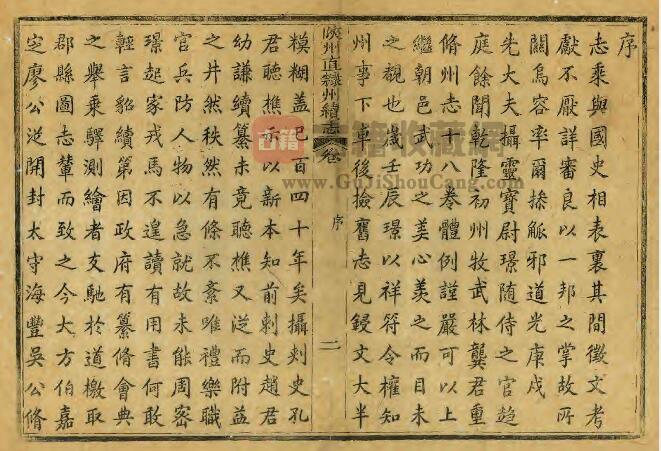 序
志乘與國史相表裏其間徵文考
獻不厭詳審良以一邦之掌故所
關烏容率爾操觚邪道光庚戌
先大夫攝靈寶尉璟隨侍之官趨
庭餘聞乾隆初州牧武林龔君重
脩州志十八卷體例謹嚴可以上
繼朝邑武功之美心羨之而目未
之覩也歲壬辰璟以祥符令權知
州事下車後撿舊志見鋟文大半
陝州直隸州續志 卷 序 二
糢糊蓋已百四十年矣攝刺史孔
君聽樵示以新本知前刺史趙君
幼謙續纂未竟聽樵又從而附益
之井然秩然有條不紊唯禮樂職
官兵防人物以急就故未能周密
璟起家戎馬不遑讀有用書何敢
輕言貂續第因政府有纂脩會典
之舉乘驛測繪者交馳於道檄取
郡縣圖志輦而致之今大方伯嘉
定廖公從開封太守海豐吳公脩
古籍收藏网
www.GuJiShouCang.com